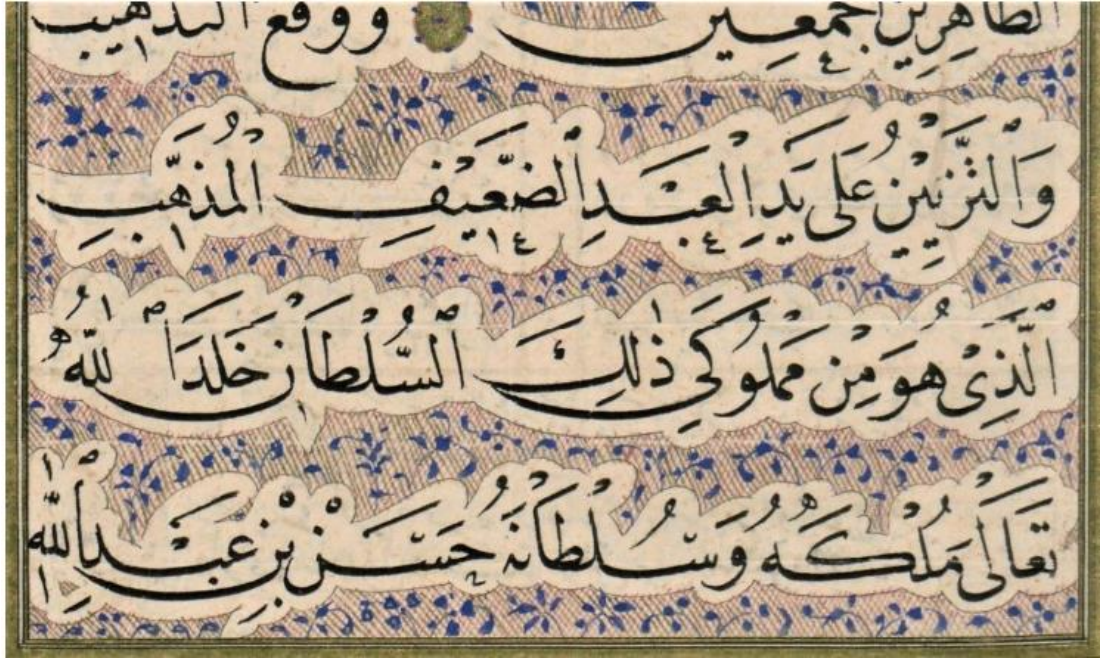 الطَّاهِرِينَ اجْمَعِين ووقع التذهيب
وَالتَّزْيِيْنِ عَلَى يَدِ الْعَبْدِ الضَّعِيْفِ الْمُذَهِّبِ
الَّذِىْ هُوَ مِنْ مَمْلُوكَىْ ذٰلِكَ السُّلْطَانْ خَلَدَ اللّٰهُ
تَعَالَى مُلْكَهُ وَسُلْطَانَهُ حَسَنْ بْنِ عَبْدِ اللّٰهِ